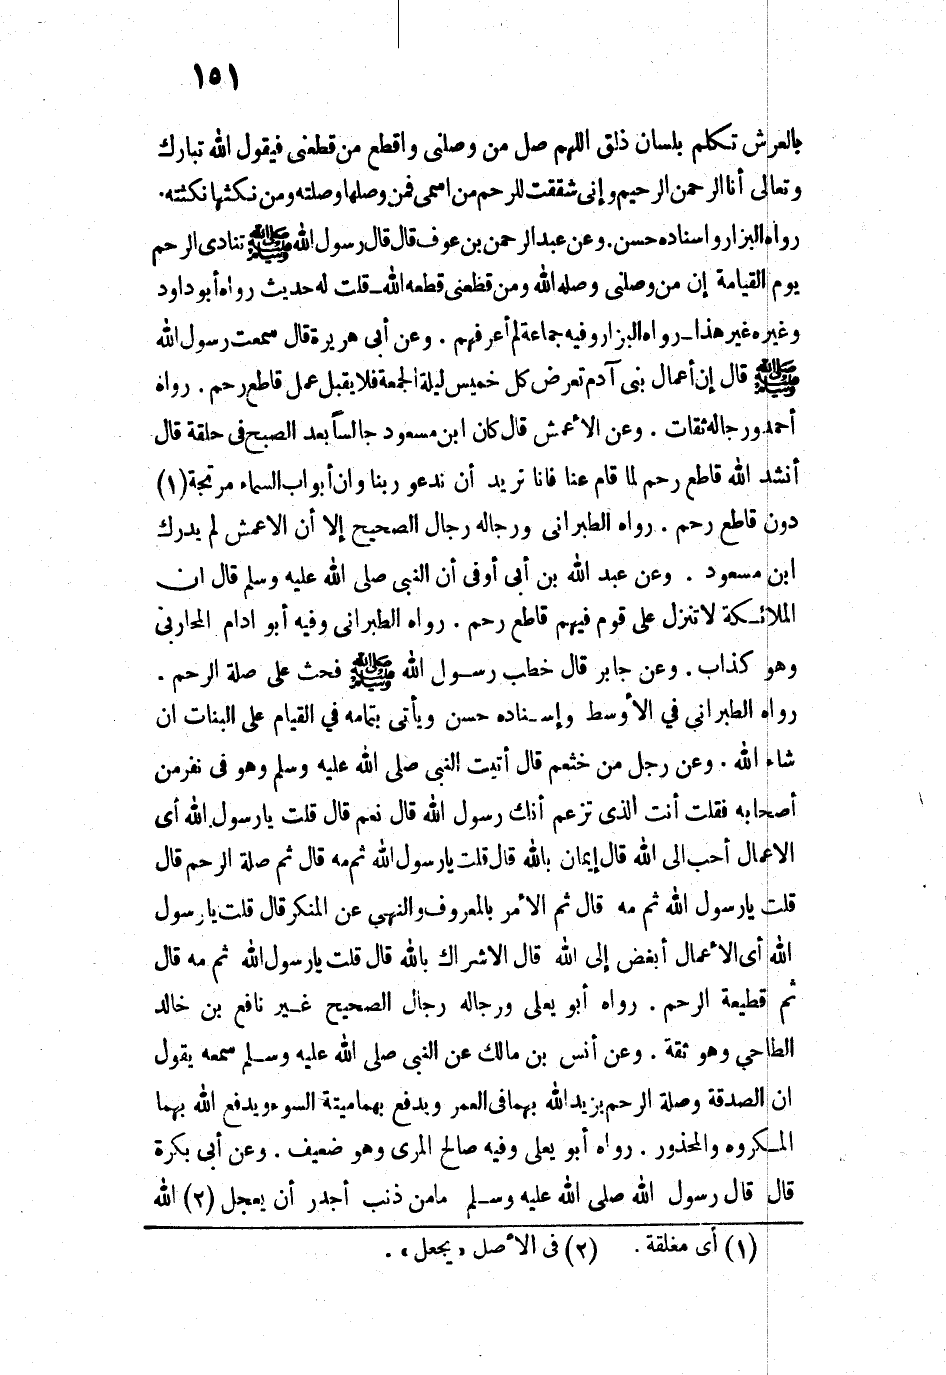 ١٥١
بالعرش تكلم بلسان ذلق اللهم صل من وصلنى واقطع من قطعنى فيقول الله تبارك
وتعالى أنا الرحمن الرحيم وإنى شققت للرحم من اسمى فمن وصلها وصلته ومن نكثها نكثته.
رواه البزار واسناده حسن. وعن عبد الرحمن بن عوف قال قال رسول الله ﷺ تنادى الرحم
يوم القيامة إن من وصلنى وصله الله ومن قظعنى قطعه الله ـ قلت له حديث رواه أبو داود
وغيره غير هذا ـ رواه البزار وفيه جماعة لم أعرفهم . وعن أبى هريرة قال سمعت رسول الله
ﷺ قال إن أعمال بنى آدم تعرض كل خميس ليلة الجمعة فلا يقبل عمل قاطع رحم . رواه
أحمد ورجاله ثقات . وعن الأعمش قال كان ابن مسعود جالساً بعد الصبح فى حلقة قال
أنشد الله قاطع رحم لما قام عنا فانا نريد أن ندعو ربنا وان أبواب السماء مرتجة (١)
دون قاطع رحم . رواه الطبرانى ورجاله رجال الصحيح إلا أن الاعمش لم يدرك
ابن مسعود . وعن عبد الله بن أبى أوفى أن النبى صلى الله عليه وسلم قال ان
الملائكة لا تنزل على قوم فيهم قاطع رحم . رواه الطبرانى وفيه أبو ادام المحاربى
وهو كذاب . وعن جابر قال خطب رسول الله ﷺ فحث على صلة الرحم .
رواه الطبراني في الأوسط وإسناده حسن ويأتى بتمامه في القيام على البنات ان
شاء الله . وعن رجل من خثعم قال أتيت النبى صلى الله عليه وسلم وهو فى نفر من
أصحابه فقلت أنت الذى تزعم أنك رسول الله قال نعم قال قلت يا رسول الله أى
الاعمال أحب الى الله قال إيمان بالله قال قلت يا رسول الله ثم مه قال ثم صلة الرحم قال
قلت يا رسول الله ثم مه قال ثم الأمر بالمعروف والنهي عن المنكر قال قلت يا رسول
الله أى الأعمال أبغض إلى الله قال الاشراك بالله قال قلت يا رسول الله ثم مه قال
ثم قطيعة الرحم . رواه أبو يعلى ورجاله رجال الصحيح غير نافع بن خالد
الطاحي وهو ثقة . وعن أنس بن مالك عن النبى صلى الله عليه وسلم سمعه يقول
ان الصدقة وصلة الرحم يزيد الله بهما فى العمر ويدفع بهما ميتة السوء ويدفع الله بهما
المكروه والمحذور . رواه أبو يعلى وفيه صالح المرى وهو ضعيف . وعن أبى بكرة
قال قال رسول الله صلى الله عليه وسلم مامن ذنب أجدر أن يعجل (٢) الله
(١) أى مغلقة . (٢) فى الأصل «يجعل» .